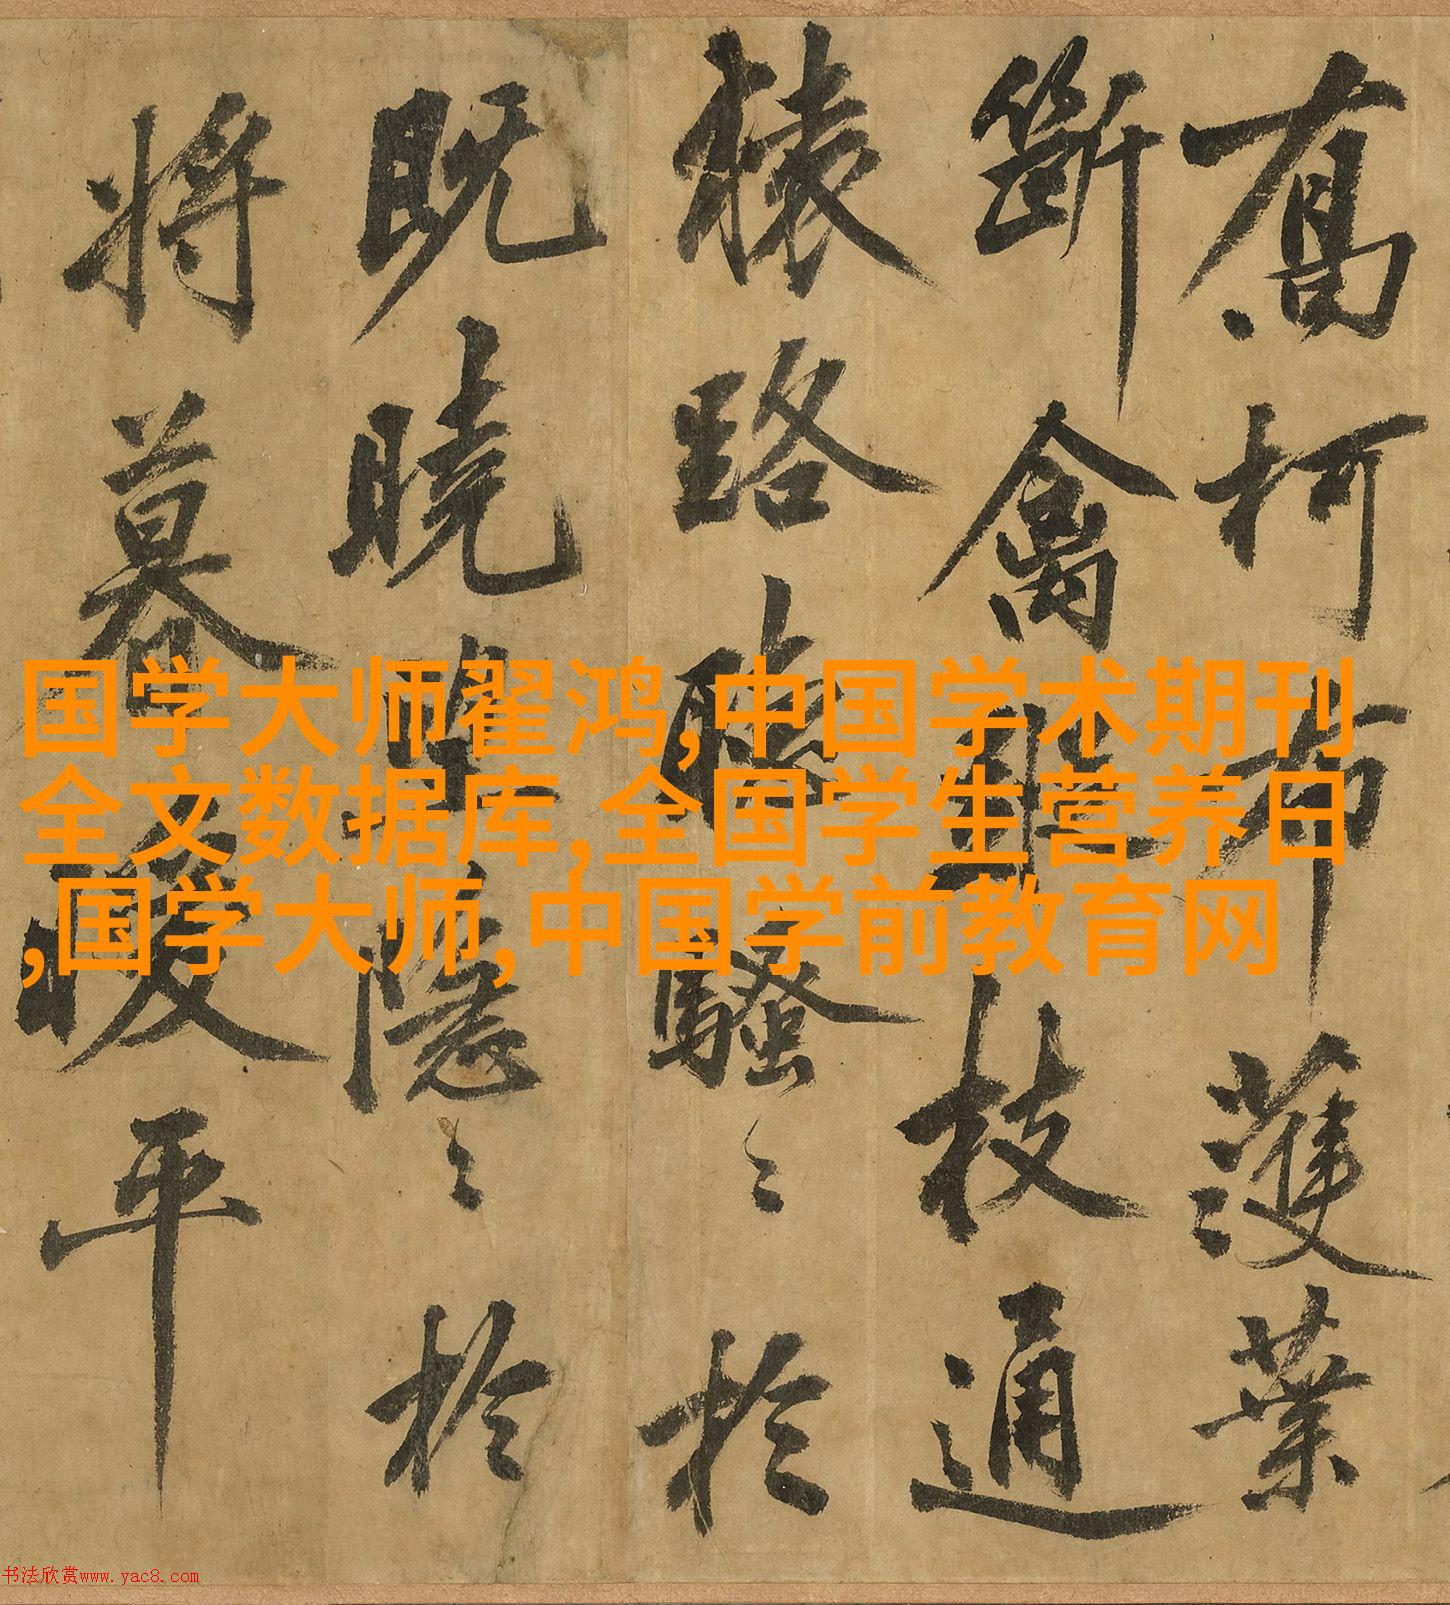 国学大师翟鸿,中国学术期刊
全文数据库,全国学生营养日
,国学大师,中国学前教育网
柯布濩葉
斷禽枝通
猿路聽騷〻於
既曉隱〻於
將暮暖平
书法欣赏www.yac8.com